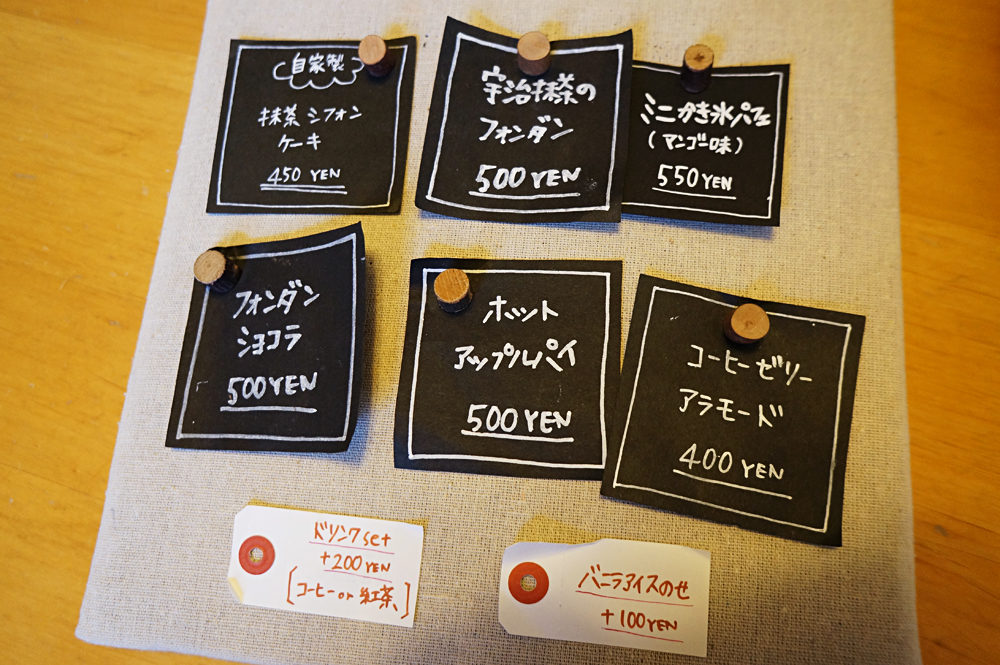 自家製
抹茶シフォン
ケーキ
450 YEN
宇治抹茶の
フォンダン
500 YEN
ミニかき氷パフェ
(マンゴー味)
550 YEN
フォンダン
ショコラ
500 YEN
ホット
アップルパイ
500 YEN
コーヒーゼリー
アラモード
400 YEN
ドリンクset
+200 YEN
[コーヒー or 紅茶]
バニラアイスのせ
+100 YEN